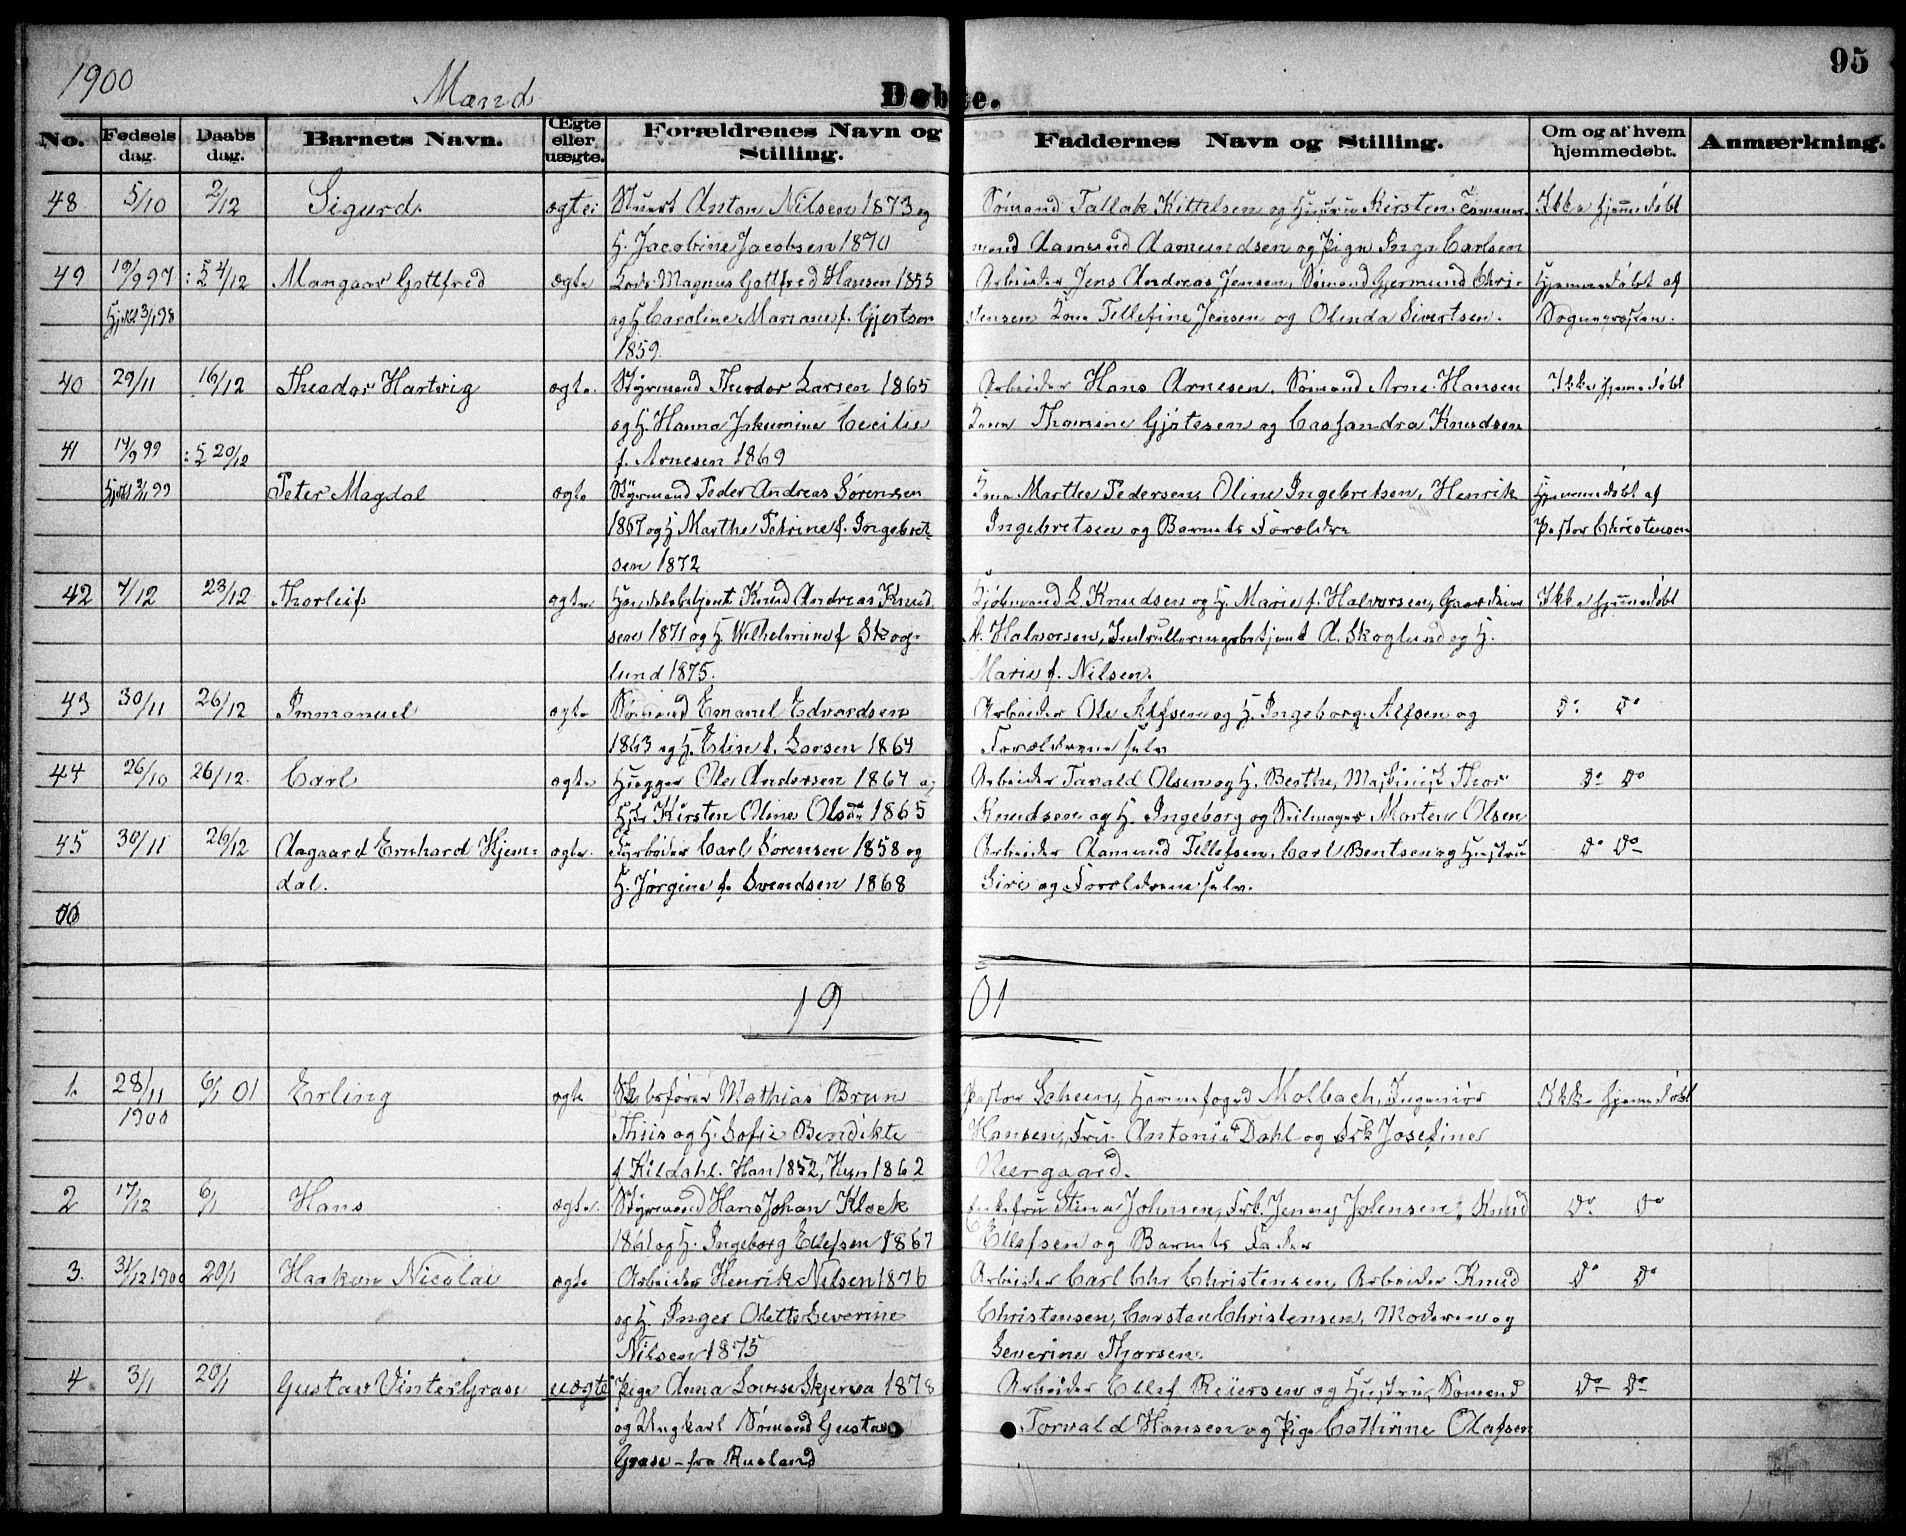 95
1900 Mænd
Døbte.
No. Fødselsdag. Daabsdag. Barnets Navn. Ægte eller uægte. Forældrenes Navn og Stilling. Faddernes Navn og Stilling. Om og af hvem hjemmedøbt. Anmærkning.
48 5/10 2/12 Sigurd. ægte Stuert Anton Nilsen 1873 og Sømand Tallak Kittelsen og Hustru Kirsten, Ikke hjemmedøbt
H. Jacobine Jacobsen 1870 mand Aamund Aamundsen og Pige Inga Carlsen
49 19/9 97 4/12 Mangaar Gottfred ægte Lods Magnus Gottfred Hansen 1855 Arbeider Jens Andreas Jensen, Sømand Gjermund Chri- Hjemmedøbt af
Hjdbt 3/1 98 og H. Caroline Mariane f. Gjertsen stensen Kone Tellefine Jensen og Olinda Sivertsen. Sognepresten.
1859.
40 29/11 16/12 Theodor Hartvig ægte. Styrmand Theodor Larsen 1865 Arbeider Hans Arnesen, Sømand Arne Hansen Ikke hjemmedøbt
og H. Hanna Jakumine Cecilie Kone Thomine Gjøtesen og Cassandra Knudsen
41 14/9 99 20/12 f. Arnesen 1869
Hjdbt 2/11 99 Peter Magdal ægte Styrmand Peder Andreas Sørensen Kone Marthe Pedersen, Oline Ingebretsen, Henrik Hjemmedøbt af
1867 og H. Marthe Petrine f. Ingebret- Ingebretsen og Barnets Forældre Pastor Christensen
sen 1872
42 7/12 23/12 Thorleif ægte Handelsbetjent Knud Andreas Knud Kjøbmand L. Knudsen og H. Marie f. Halvorsen, Ikke hjemmedøbt
sen 1871 og H. Wilhelmine f. Skog- A. Halvorsen, Indrulleringsbetjent A. Skoglund og H.
lund 1875. Marie f. Nilsen.
43 30/11 26/12 Immanuel ægte Sømand Emanel Edvardsen Arbeider Ole Alfsen og H. Ingeborg Alfsen og Do Do
1863 og H. Elise f. Larsen 1864 Forældrene selv
44 26/10 26/12. Carl ægte Hugger Ole Andersen 1867 og Arbeider Tarald Olsen og H. Berthe, Maskinist Thor Do Do
Hst. Kirsten Oline Olsdtr 1865 Knudsen og H. Ingeborg og Seilmager Morten Olsen
45 30/11 26/12 Aagaard Ernhard Hjem- ægte. Arbeider Carl Sørensen 1858 og Arbeider Aamund Tellefsen, Carl Bentsen og Hustru Do Do
dal. H. Jørgine f. Svendsen 1868 Siri og Forældrene selv.
1901
1. 28/11 6/1 01 Erling ægte Skibsfører Mathias Brun Pastor Scheen, Havnefoged Molbach, Ingeniør Ikke hjemmedøbt
1900 Thiis og H. Sofie Bendikte Hansen, Fru Antonie Dahl og Frk Josefine
f. Kildahl. Han 1852, Hun 1862 Neergaard.
2 17/12 6/1 Hans ægte. Styrmand Hans Johan Klock Enkefru Stina Johnsen, Frk. Jenny Johnsen, Knud Do Do
1861 og H. Ingeborg Ellefsen 1867 Ellefsen og Barnets Fader
3. 31/12 1900 20/1 Haakon Nicolai ægte Arbeider Henrik Nilsen 1876 Arbeider Carl Chr Christensen, Arbeider Knud Do Do
og H. Inger Olette Severine Christensen, Carsten Christensen, Moderen og
Nilsen 1875 Severine Thorsen.
4 3/1 20/1 Gustav Vinter Grase uægte Pige Anna Lovise Skjerva 1878 Arbeider Ellef Reiersen og Hustru, Sømand Do Do
og Ungkarl Sømand Gustav Torvald Hansen og Pige Cathrine Olafsen
Grase - fra Rusland